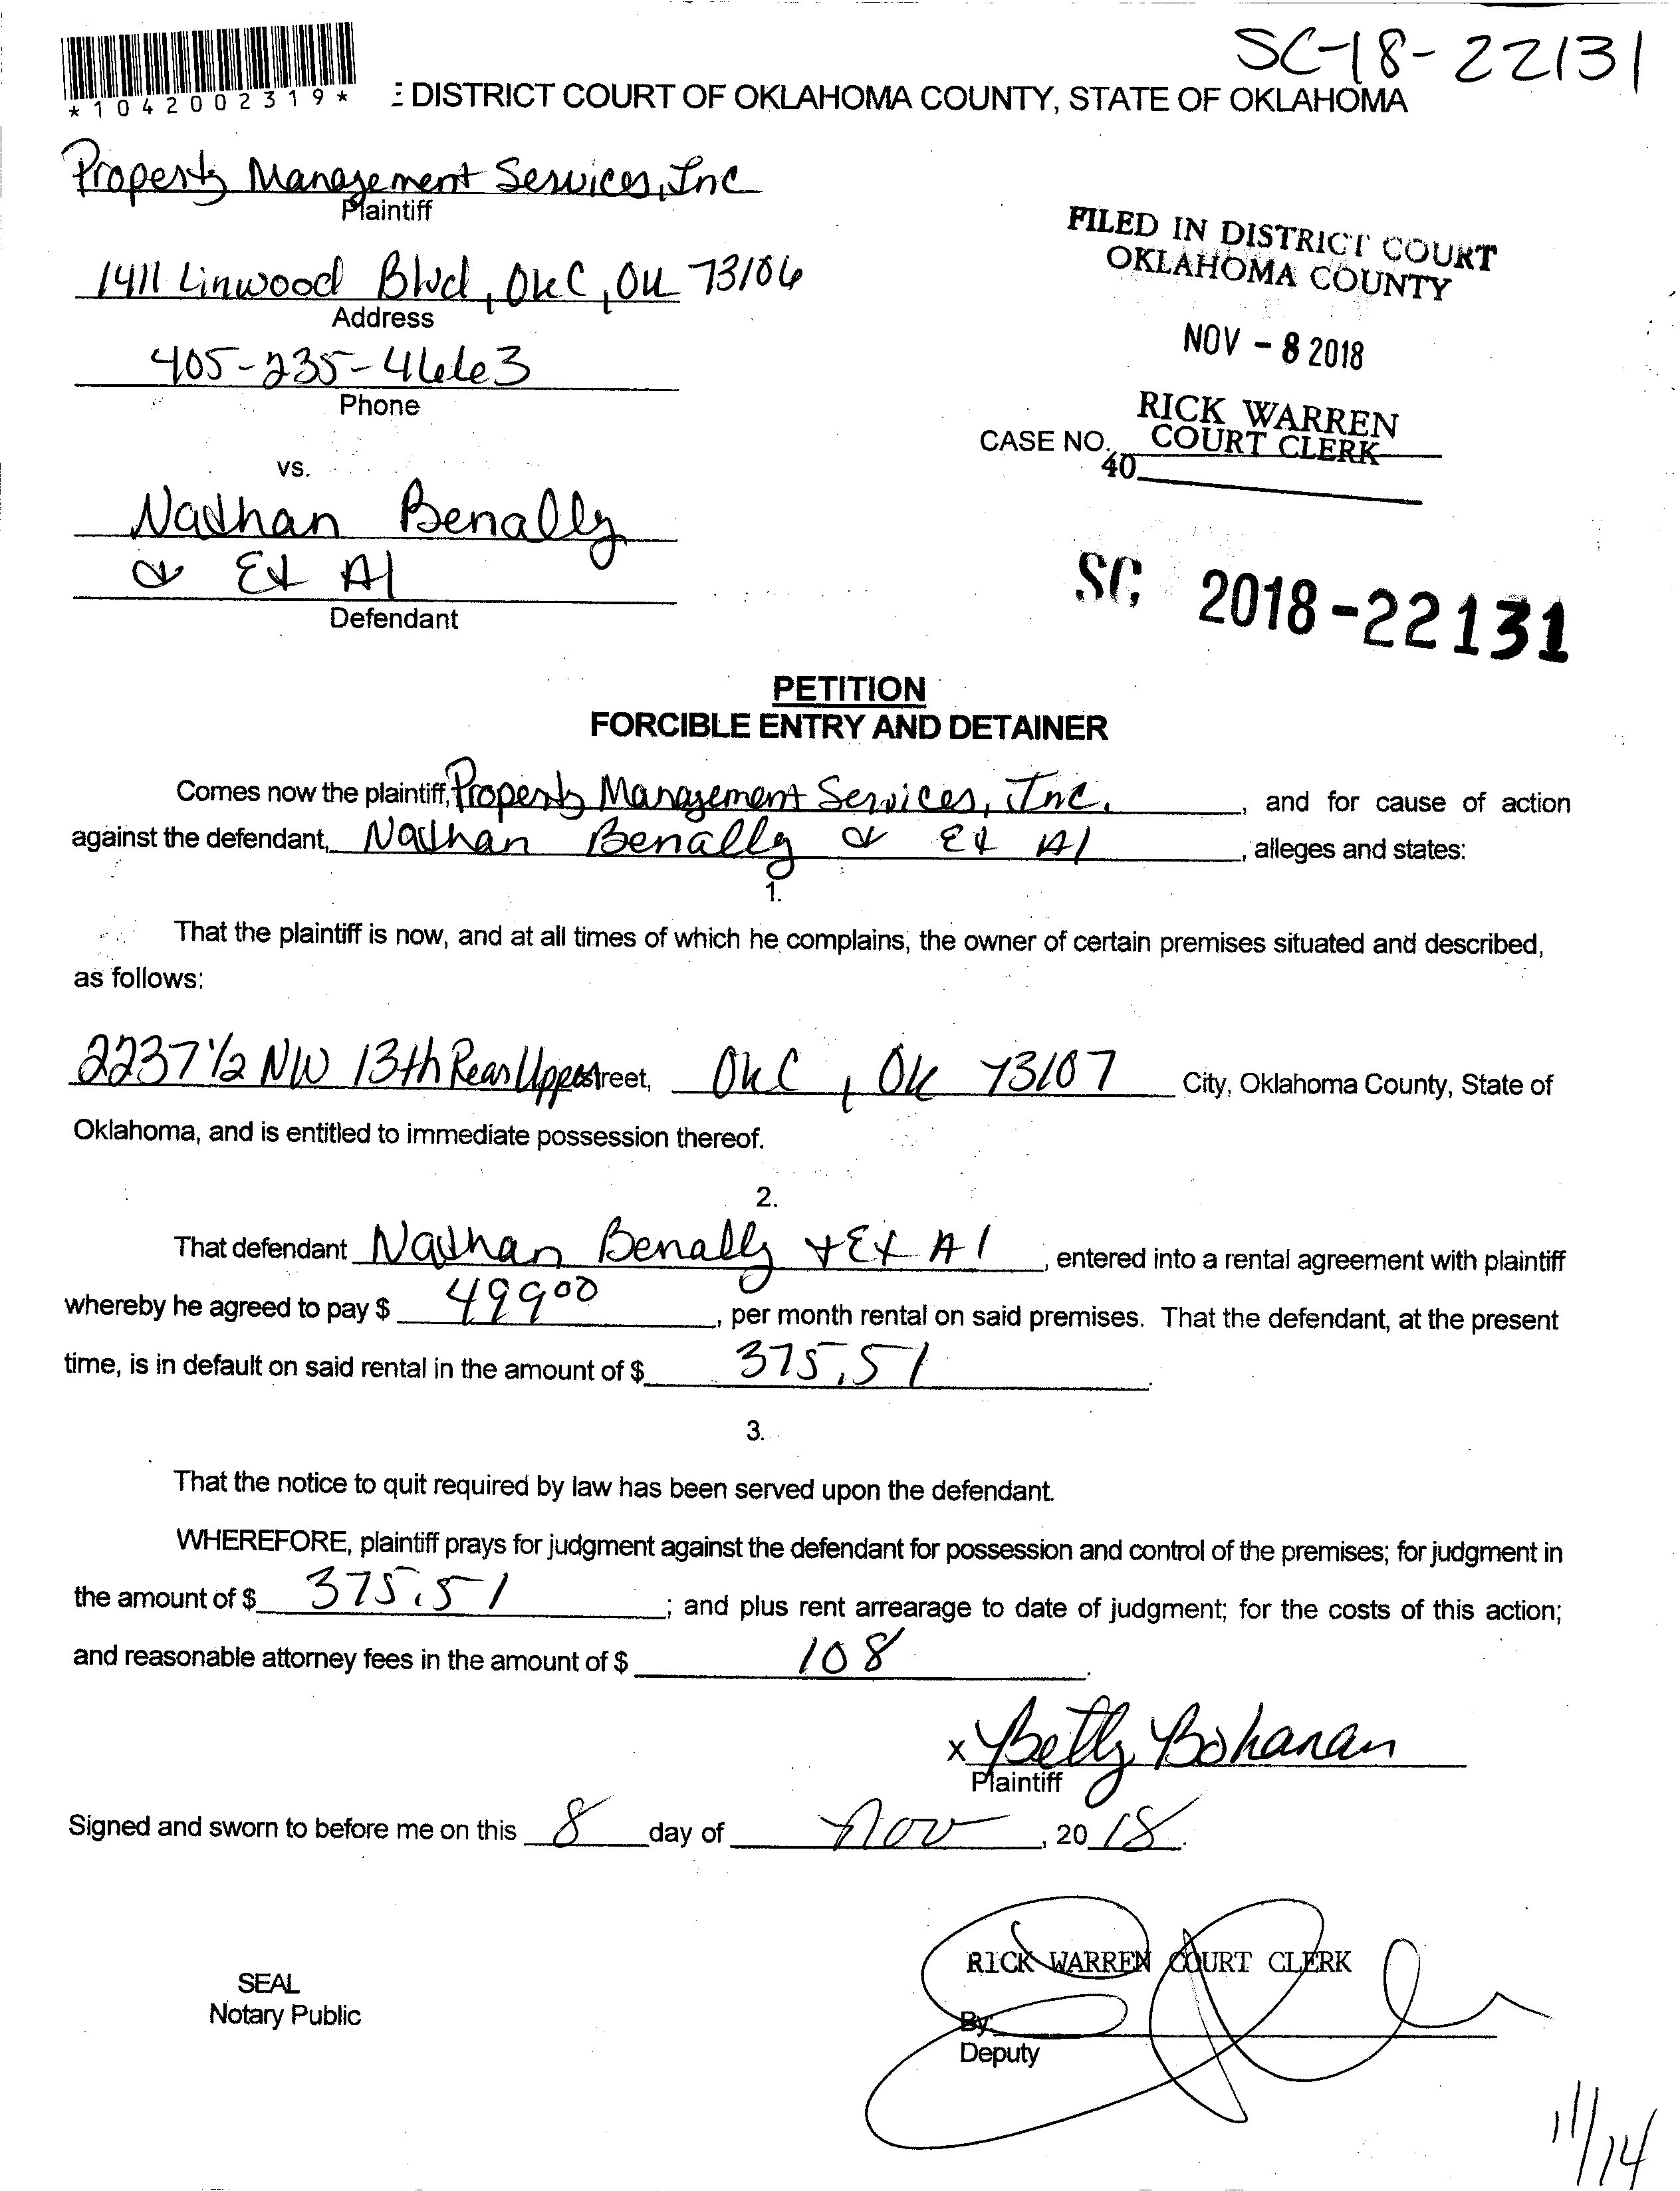 SC-18-22131
*1042002319*
E DISTRICT COURT OF OKLAHOMA COUNTY, STATE OF OKLAHOMA
Property Management Services, Inc
Plaintiff
1411 Linwood Blvd, OKC, OK 73106
Address
405-235-4663
Phone
FILED IN DISTRICT COURT
OKLAHOMA COUNTY
NOV - 8 2018
RICK WARREN
COURT CLERK
CASE NO.
40
vs.
Nathan Benally
& Et Al
Defendant
SC 2018-22131
PETITION
FORCIBLE ENTRY AND DETAINER
Comes now the plaintiff, Property Management Services, Inc. , and for cause of action
against the defendant, Nathan Benally & Et Al , alleges and states:
1.
That the plaintiff is now, and at all times of which he complains, the owner of certain premises situated and described,
as follows:
2237 1/2 NW 13th Rear Upper street, OKC, OK 73107 City, Oklahoma County, State of
Oklahoma, and is entitled to immediate possession thereof.
2.
That defendant Nathan Benally + Et Al , entered into a rental agreement with plaintiff
whereby he agreed to pay $ 499 00 , per month rental on said premises. That the defendant, at the present
time, is in default on said rental in the amount of $ 375.51 .
3.
That the notice to quit required by law has been served upon the defendant.
WHEREFORE, plaintiff prays for judgment against the defendant for possession and control of the premises; for judgment in
the amount of $ 375.51 ; and plus rent arrearage to date of judgment; for the costs of this action;
and reasonable attorney fees in the amount of $ 108 .
x Betty Bohanan
Plaintiff
Signed and sworn to before me on this 8 day of Nov , 20 18.
RICK WARREN COURT CLERK
SEAL
Notary Public
By:
Deputy
11/14